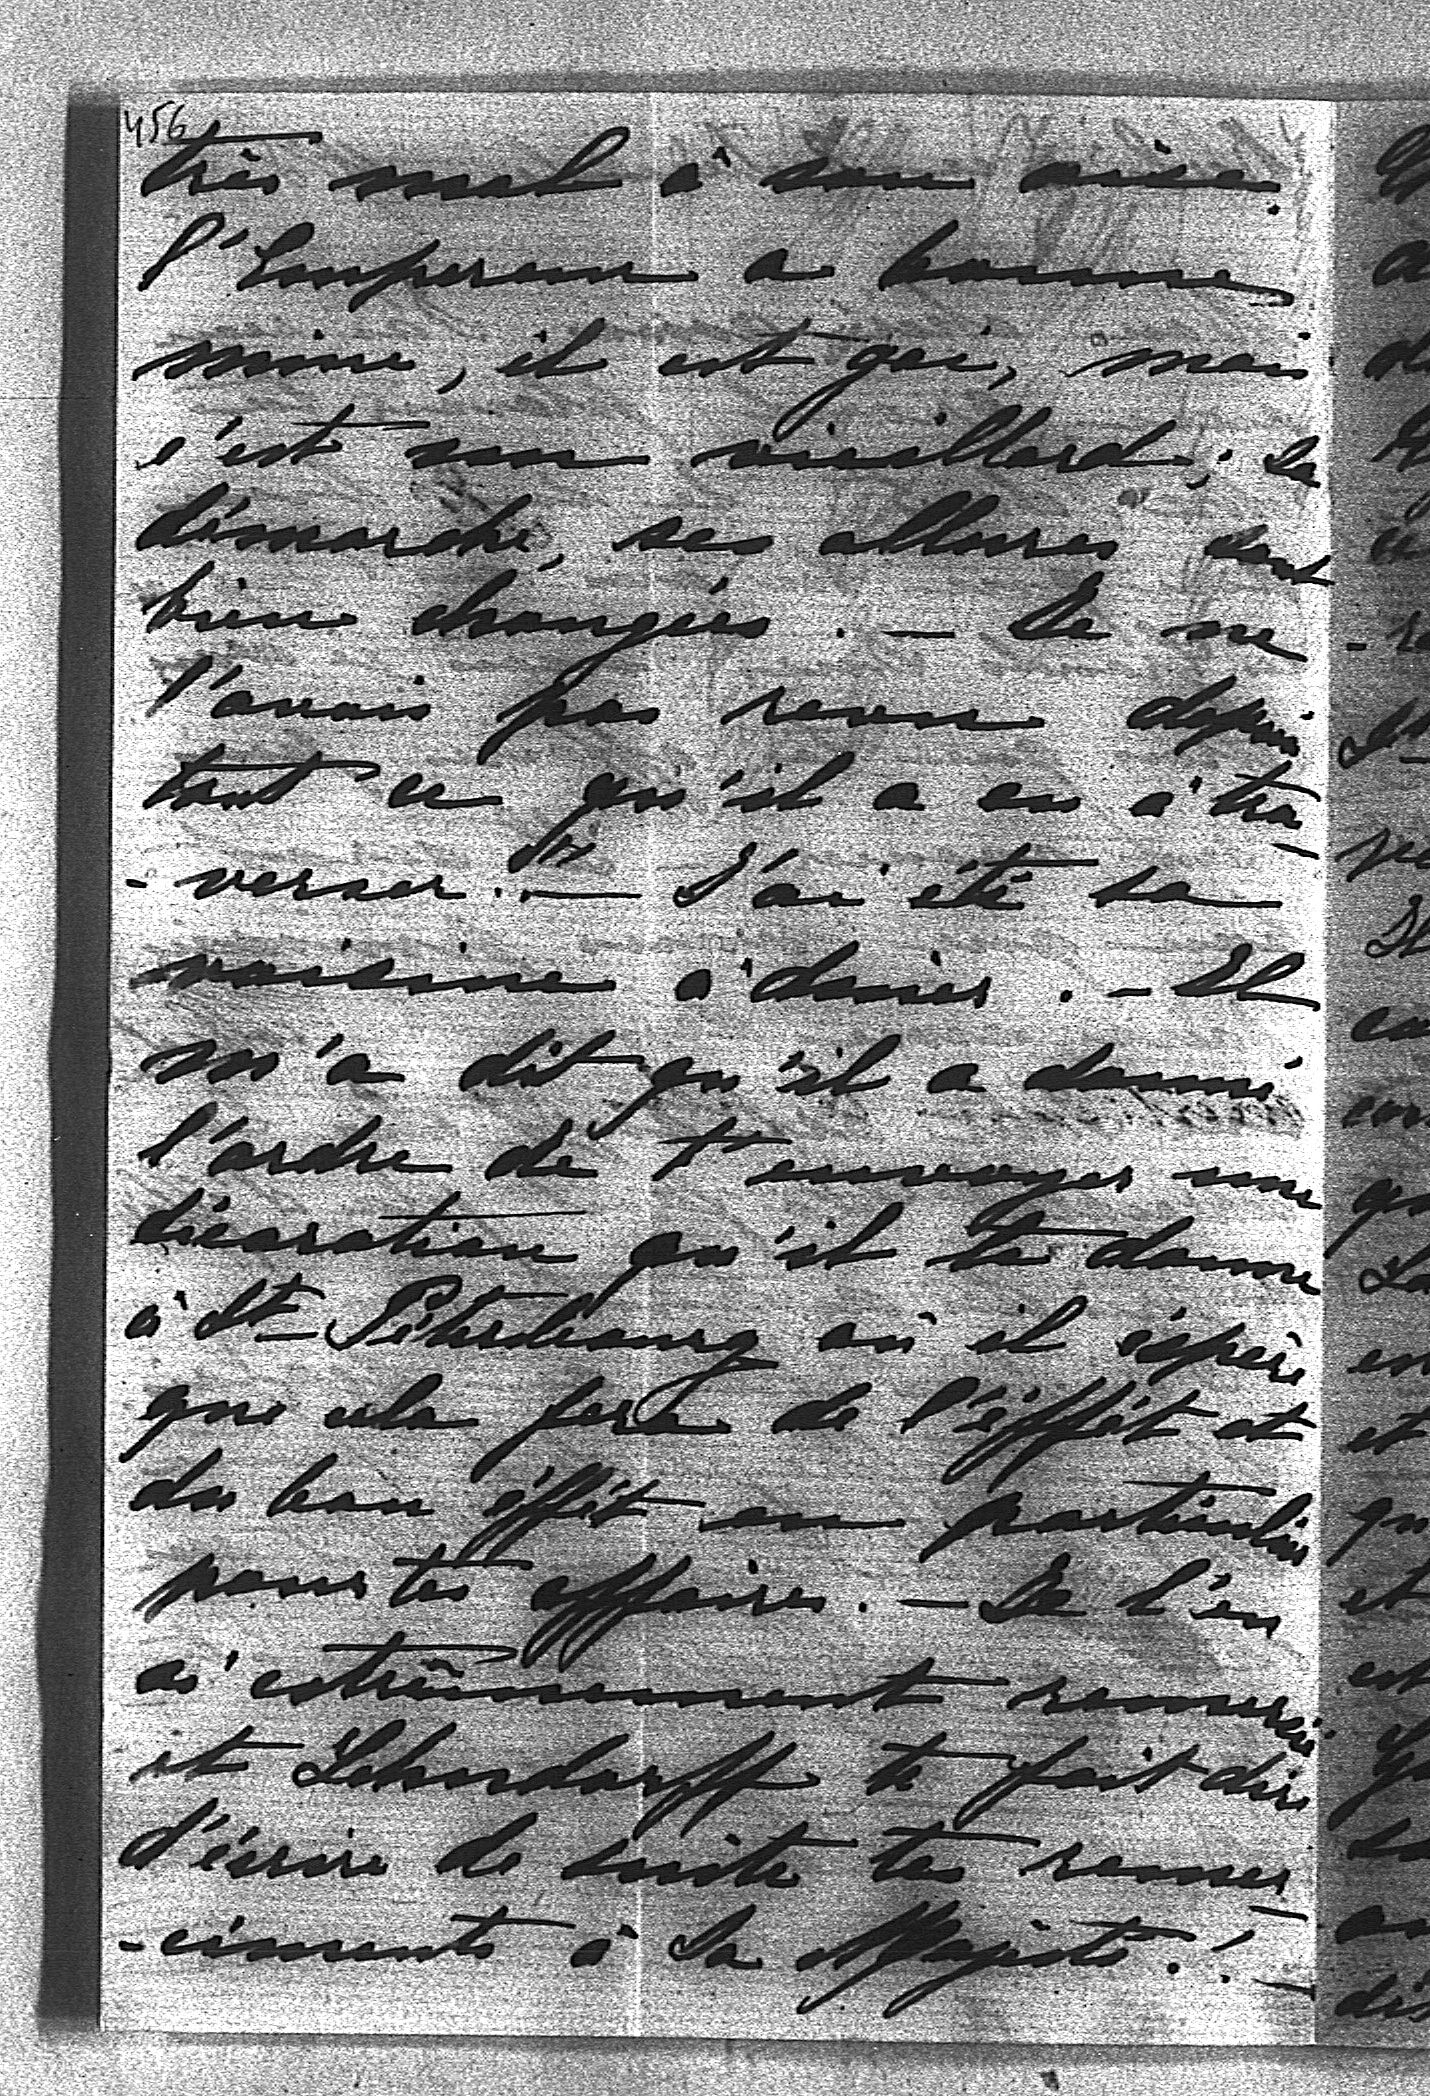 456
très mal à son aise.
l'Empereur a bonne
mine, il est gai, mais
c'est un vieillard; sa
démarche, ses allures sont
bien changées. — Je ne
l'avais pas revu depuis
tout ce qu'il a eu à tra-
-verser. — J'ai été sa
voisine à diner. — Il
m'a dit qu'il a donné
l'ordre de t'envoyer une
décoration qu'il te donne
à St Pétersbourg où il éspère
que cela fera de l'éffét et
du bon éffét en particulier
pour tes affaires. — Je l'en
ai extrêmement remercié
et Lehndorff te fait dire
d'écrire de suite tes remer-
-ciments à Sa Majesté! —